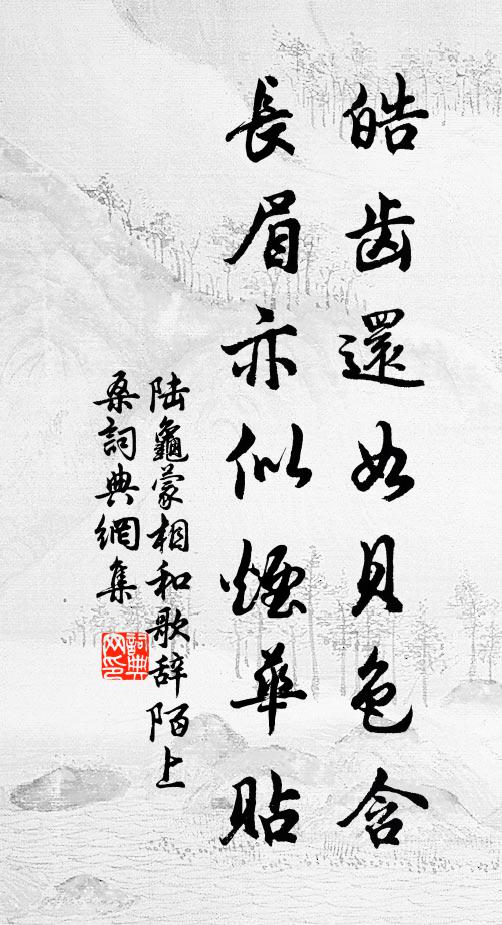 皓齒還如貝色含
長眉亦似煙華貼
陆龜蒙相和歌辞陌上
桑詞典網集
詞典网印